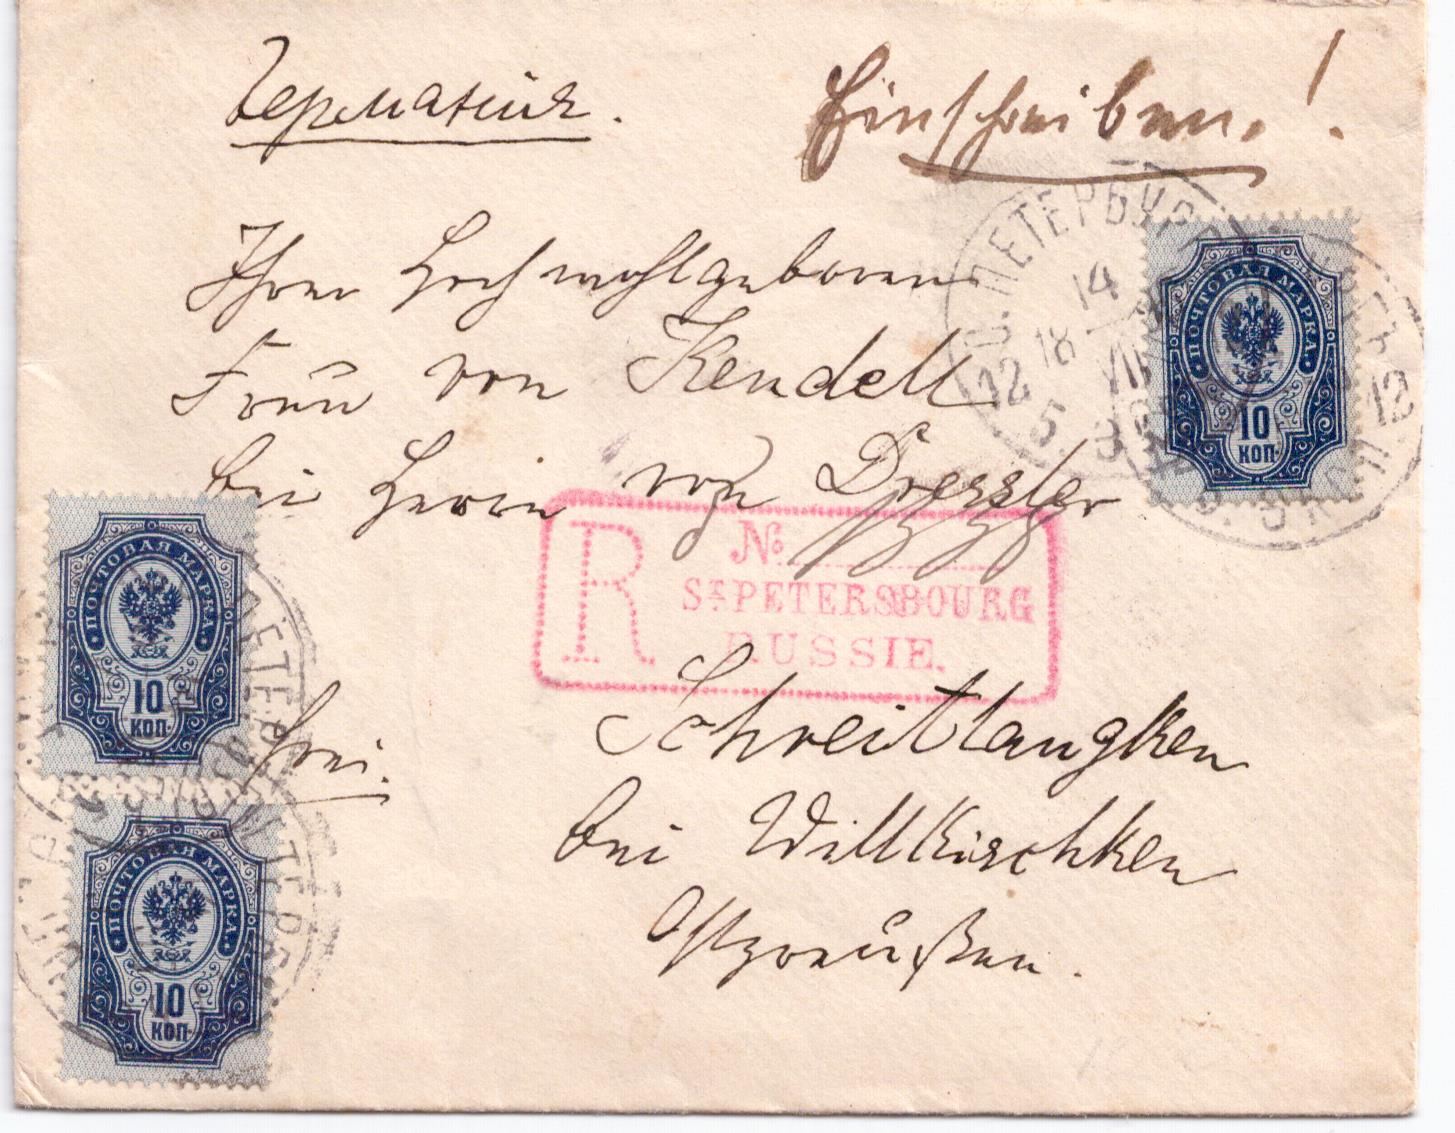 Германія.
Einschreiben!
Ihrer Hochwohlgeboren
Frau von Keudell
bei Herrn von Dressler
Schreitlaugken
bei Willkischken
Ostpreußen.
frei.
R
№
ST PETERSBOURG
RUSSIE.
С. ПЕТЕРБУРГ
14
18 VII
12
5
12
ПОЧТОВАЯ МАРКА
10
КОП.
ПОЧТОВАЯ МАРКА
10
КОП.
ПОЧТОВАЯ МАРКА
10
КОП.